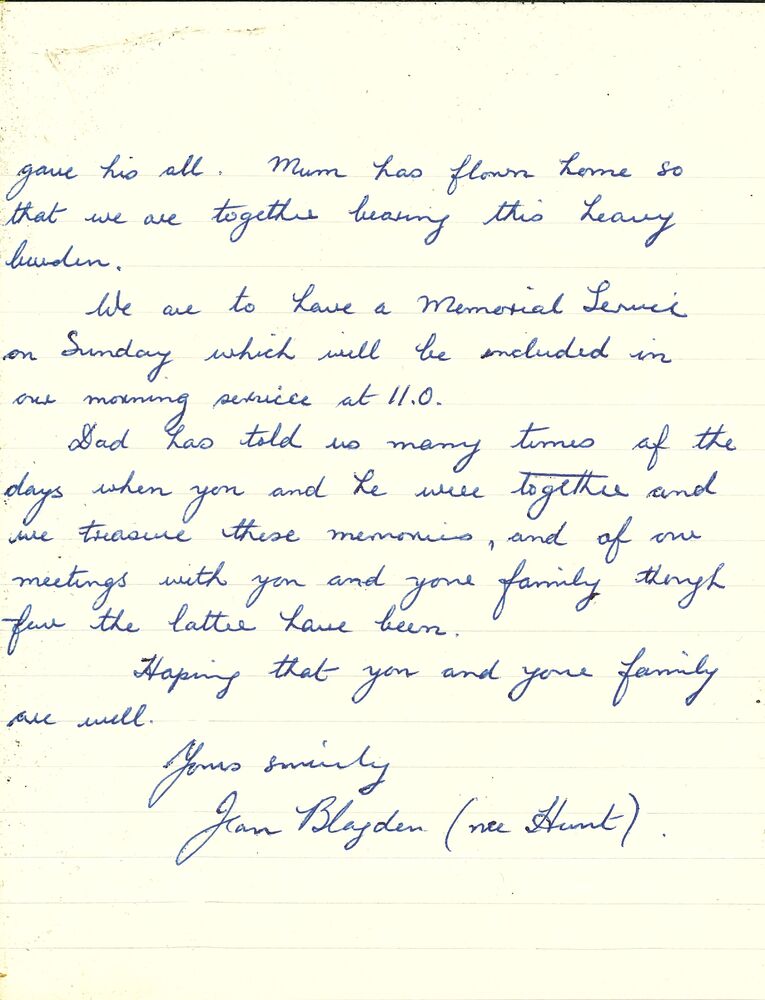 gave his all. Mum has flown home so
that we are together bearing this heavy
burden.
We are to have a Memorial Service
on Sunday which will be included in
our morning service at 11.0.
Dad has told us many times of the
days when you and he were together and
we treasure these memories, and of our
meetings with you and your family though
few the latter have been.
Hoping that you and your family
are well.
Yours sincerely
Jean Blagden (nee Hunt).